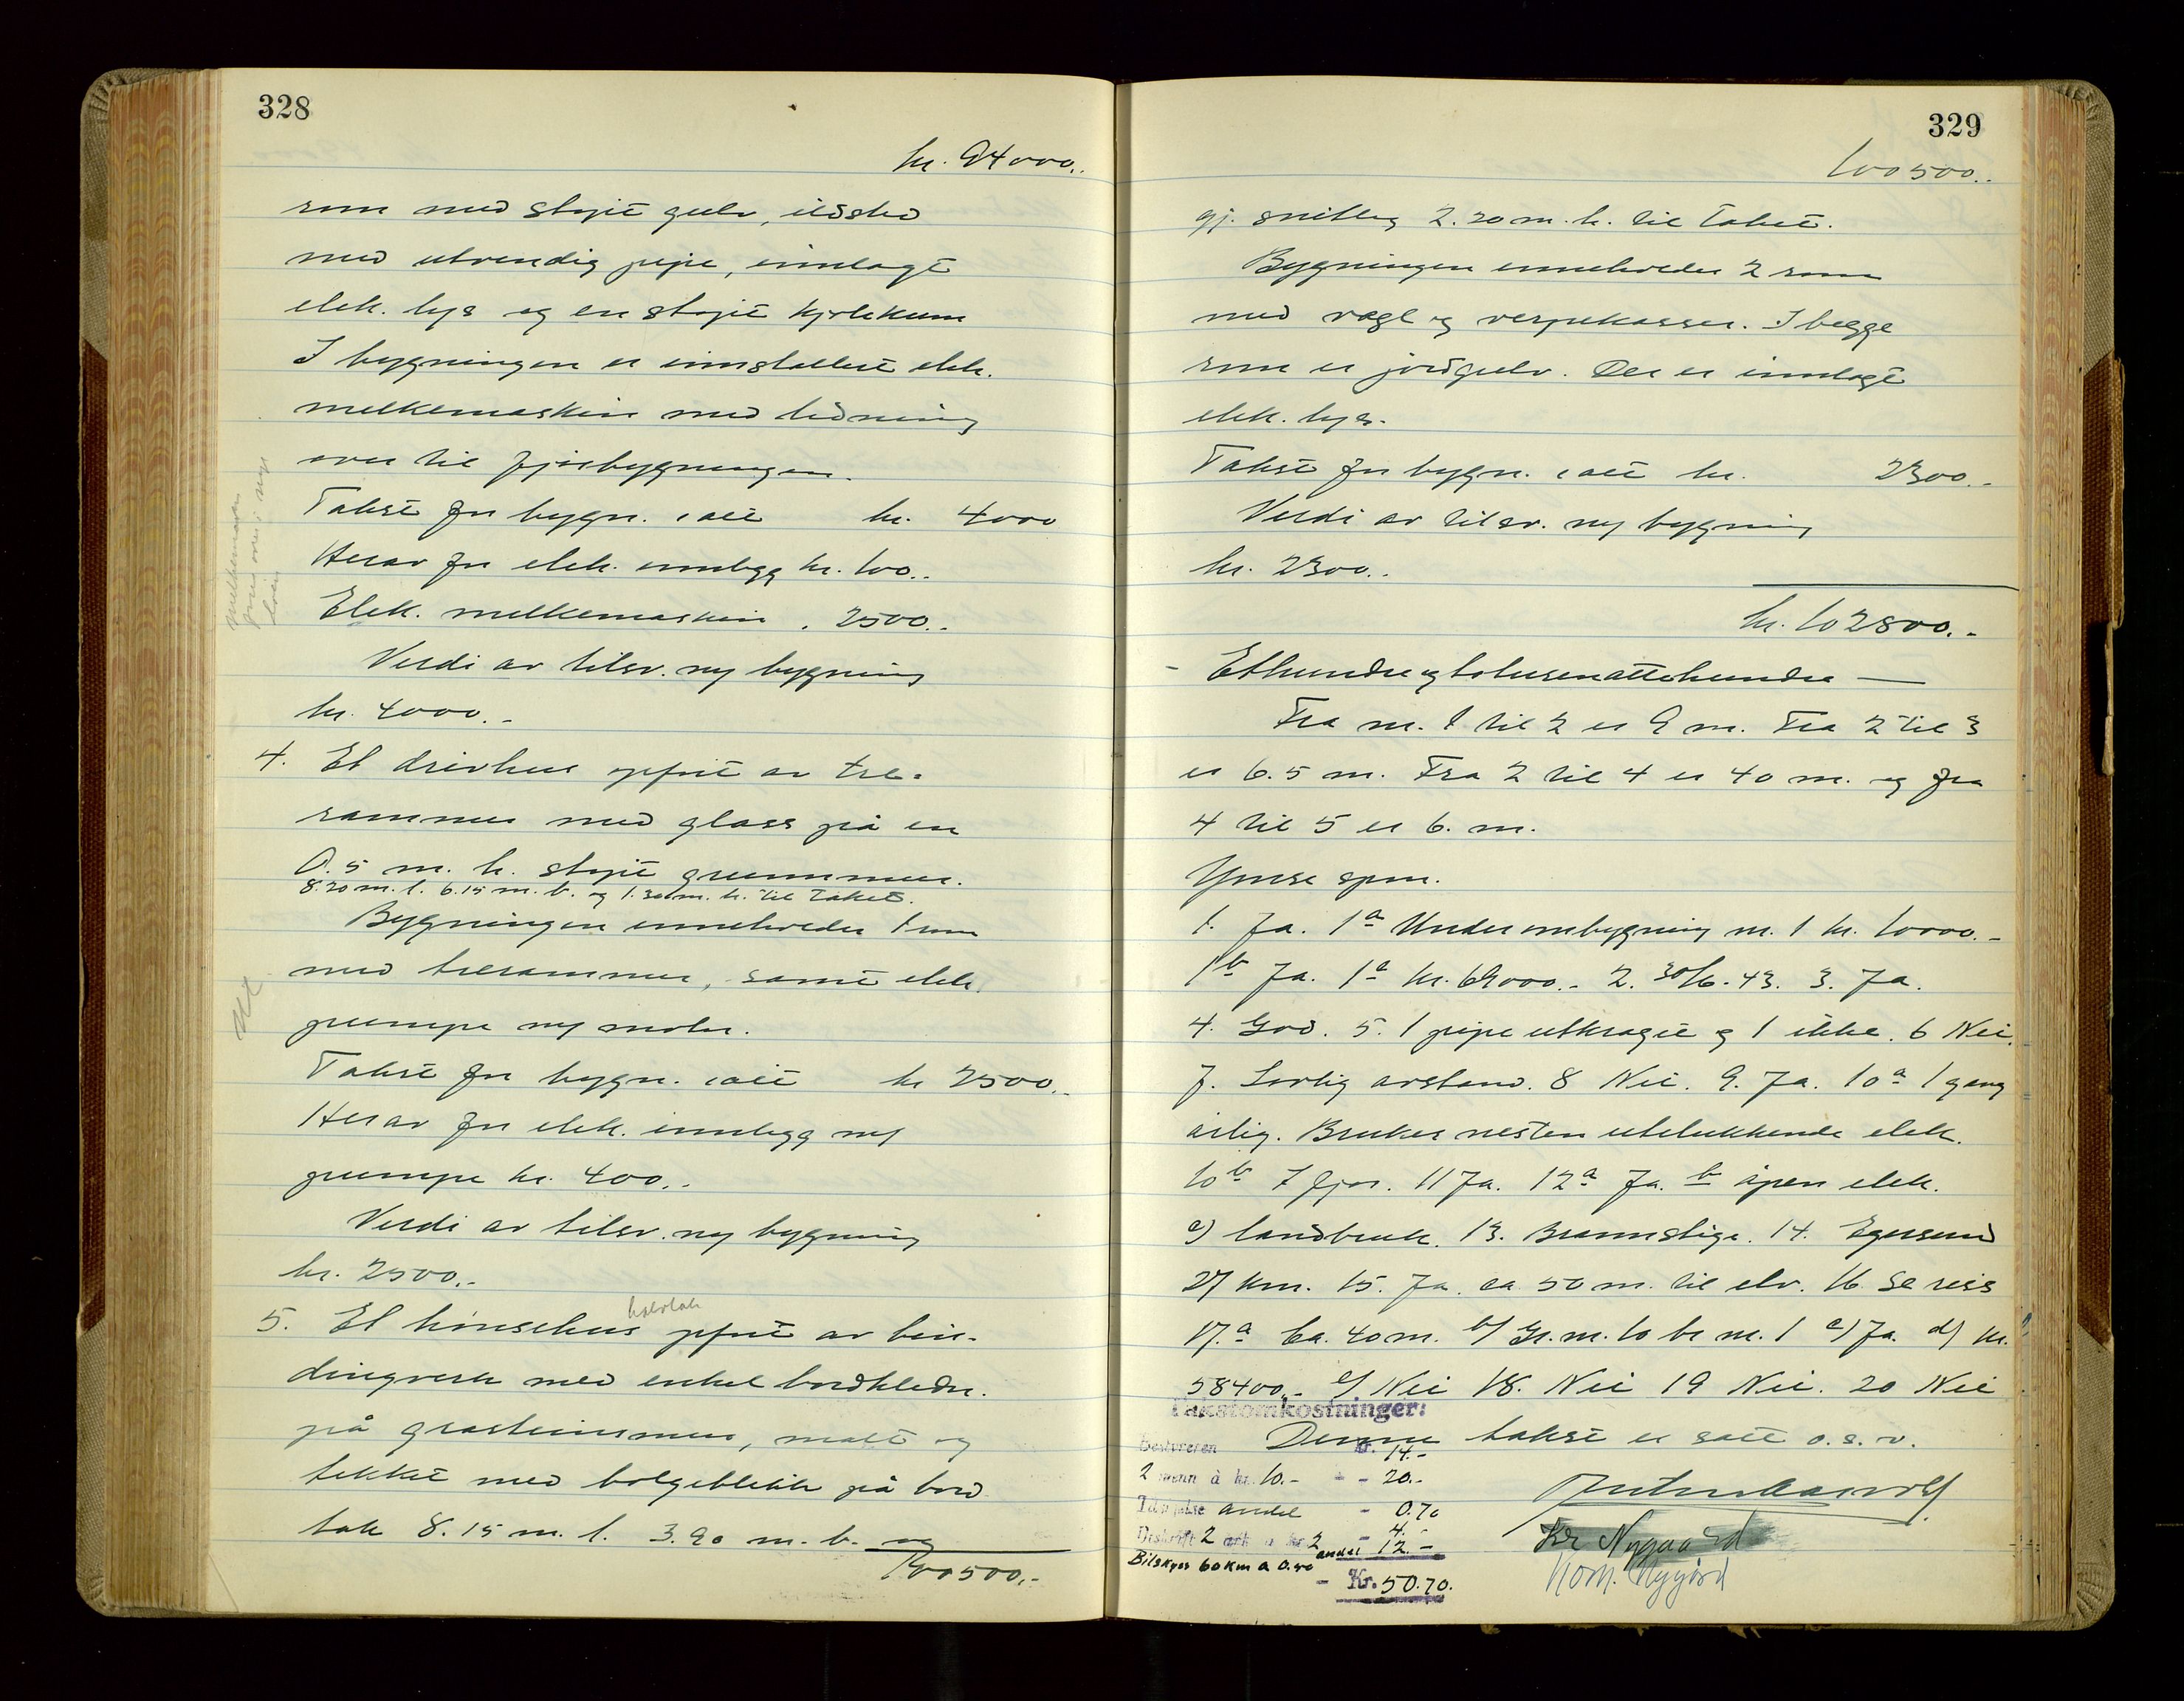 328
kr. 94000.-
rom med støpt gulv, ildsted
med utvendig pipe, innlagt
elek. lys og en støpt kjølekum
I bygningen er innstallert elek.
melkemaskin med ledning
over til fjøsbygningen.
Takst for bygn. satt kr. 4000
Herav for elek. innlegg kr. 100.-
Elek. melkemaskin . 2500.-
Verdi av tilsv. ny bygning
kr. 4000.-
4. Et drivhus oppført av tre-
rammer med glass på en
0.5 m. h. støpt grunnmur.
8.20 m. l. 6.15 m. b. og 1.30 m. h. til taket.
Bygningen inneholder 1 rom
med trerammer, samt elek.
pumpe m/ motor.
Takst for bygn. satt kr 2500.-
Herav for elek. innlegg m/
pumpe kr. 400.-
Verdi av tilsv. ny bygning
kr. 2500.-
5. Et hønsehus oppført av bin-
dingverk med enkel bordkledn.
på gråsteinsmur, malt og
tekket med bølgeblikk på bord
tak 8.15 m. l. 3.90 m. b. og
100500.-
melkemaskin
ut
329
100500.-
gj. snitlig 2.20 m. h. til taket.
Bygningen inneholder 2 rom
med vagl og verpekasser. I begge
rom er jordgulv. Der er innlagt
elek. lys.
Takst for bygn. satt kr. 2300.-
Verdi av tilsv. ny bygning
kr. 2300.-
kr. 102800.-
- Ethundreogtotusenåttehundre —
Fra nr. 1 til 2 er 9 m. Fra 2 til 3
er 6.5 m. Fra 2 til 4 er 40 m. og fra
4 til 5 er 6. m.
Ymse spm.
1. Ja. 1a Under ombygning nr. 1 kr. 10000.-
1b Ja. 1a kr. 69000.- 2. 30/6.43. 3. Ja.
4. God. 5. 1 pipe utkraget og 1 ikke. 6 Nei.
7. Lovlig avstand. 8 Nei. 9. Ja. 10a 1 gang
årlig. Bruker nesten utelukkende elek.
10b I fjor. 11 Ja. 12a Ja. b åpen elek.
c) landbruk. 13. Brannstige. 14. Egersund
27 km. 15. Ja. ca 50 m. til elv. 16. Se riss
17.a Ca. 40 m. b) Gr. nr. 10 br nr. 1 c) Ja. d) kr.
58400.- e) Nei 18. Nei 19 Nei. 20 Nei
Takstomkostninger:
Denne takst er satt o.s.v.
Bestyreren kr. 14.-
2 menn à kr. 10.- - - 20.-
andel - 0.70
2 ark à kr 2 - 4.-
Bilskyss 60 km a 0.40 andel 12.-
- Kr. 50.70.
Kr Nygaard
Kom. Nygård